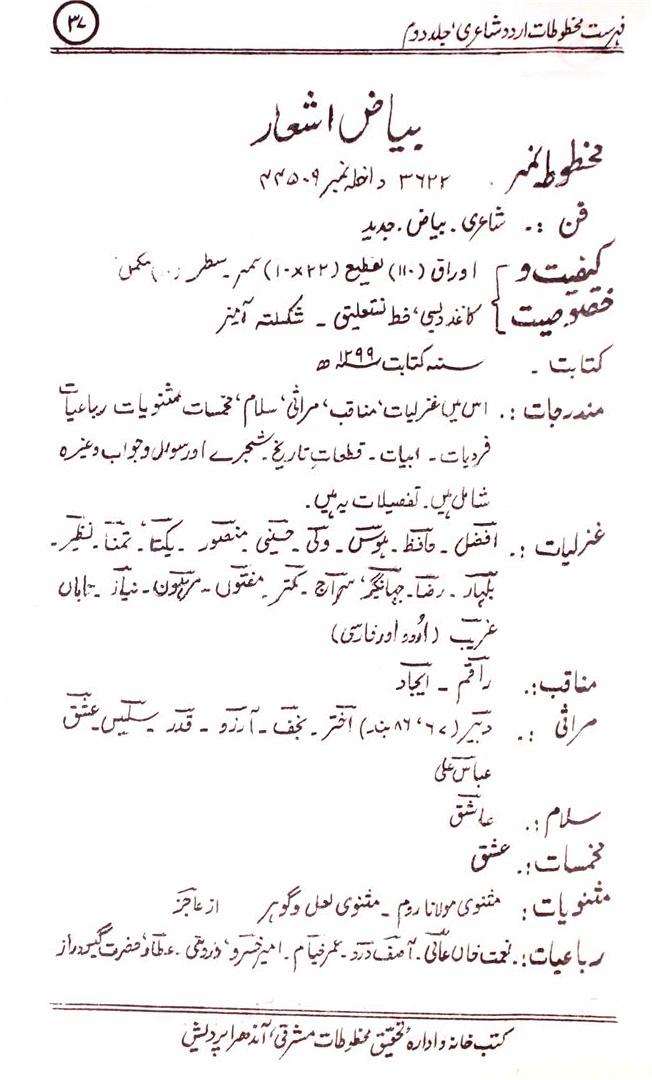 فہرست مخطوطات اردو شاعری، جلد دوم
۳۷
بیاض اشعار
مخطوطہ نمبر ۳۶۲۲ داخلہ نمبر ۴۴۵۰۹
فن :۔ شاعری ۔ بیاض ۔ جدید
کیفیت و اوراق (۱۱۰) تقطیع (۲۲×۱۰) سمر ۔ سطر مکمل
خصوصیت کاغذ دیسی، خط نستعلیق ۔ شکستہ آمیز
کتابت ۔ سنہ کتابت ۱۲۹۹ ھ
مندرجات :۔ اس میں غزلیات، مناقب، مراثی، سلام، مخمسات مثنویات رباعیات
فردیات ۔ ابیات ۔ قطعات تاریخ ۔ شجرے اور سوال و جواب وغیرہ
شامل ہیں ۔ تفصیلات یہ ہیں ۔
غزلیات :۔ افضل ۔ حافظ ۔ ہوس ۔ ولی ۔ حسینی منصور ۔ یکتا، تمنا ۔ نظیر ۔
بلہار ۔ رضا ۔ جہانگیر، سراج ۔ کمتر مفتوں ۔ مرہون ۔ نیاز ۔ تاباں
غریب (اُردو اور فارسی)
مناقب :۔ راقم ۔ ایجاد
مراثی :۔ دبیر (۶۷، ۸۶ بند) اختر ۔ نجف ۔ آرزو ۔ قدر سلیس ۔ عشق
عباس علی
سلام :۔ عاشق
مخمسات :۔ عشق
مثنویات : مثنوی مولانا روم ۔ مثنوی لعل و گوہر از عاجز
رباعیات :۔ نعمت خاں عالی ۔ آصف درد ۔ عمر خیام ۔ امیر خسرو، عطا، حضرت گیسو دراز
کتب خانہ و ادارہ تحقیق مخطوطات مشرقی، آندھرا پردیش